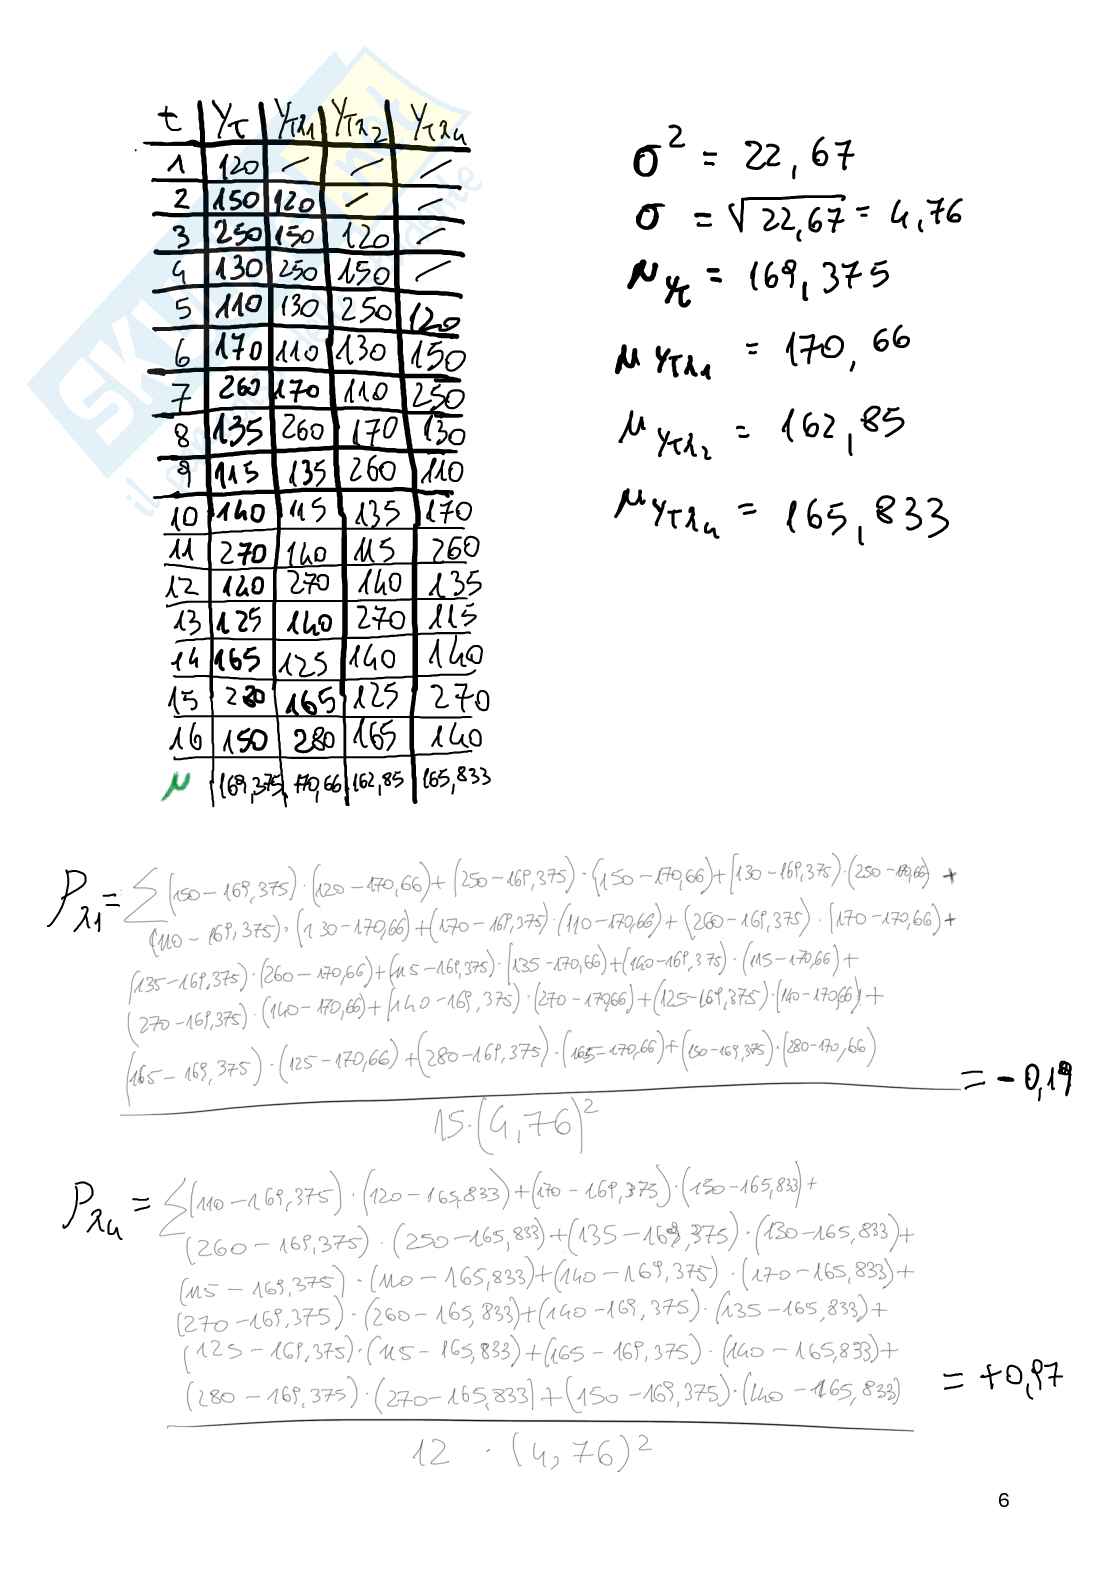 t Yτ Yτλ1 Yτλ2 Yτλ4
1 120 / / /
2 150 120 / /
3 250 150 120 /
4 130 250 150 /
5 110 130 250 120
6 170 110 130 150
7 260 170 110 250
8 135 260 170 130
9 115 135 260 110
10 140 115 135 170
11 270 140 115 260
12 140 270 140 135
13 125 140 270 115
14 165 125 140 140
15 280 165 125 270
16 150 280 165 140
μ 169,375 170,66 162,85 165,833
σ² = 22,67
σ = √22,67 = 4,76
μYτ = 169,375
μYτλ1 = 170,66
μYτλ2 = 162,85
μYτλ4 = 165,833
Pλ1 = Σ(150-169,375)·(120-170,66)+(250-169,375)·(150-170,66)+(130-169,375)·(250-170,66)+
(110-169,375)·(130-170,66)+(170-169,375)·(110-170,66)+(260-169,375)·(170-170,66)+
(135-169,375)·(260-170,66)+(115-169,375)·(135-170,66)+(140-169,375)·(115-170,66)+
(270-169,375)·(140-170,66)+(140-169,375)·(270-170,66)+(125-169,375)·(140-170,66)+
(165-169,375)·(125-170,66)+(280-169,375)·(165-170,66)+(150-169,375)·(280-170,66)
= -0,19
15·(4,76)²
Pλ4 = Σ(110-169,375)·(120-165,833)+(170-169,375)·(150-165,833)+
(260-169,375)·(250-165,833)+(135-169,375)·(130-165,833)+
(115-169,375)·(110-165,833)+(140-169,375)·(170-165,833)+
(270-169,375)·(260-165,833)+(140-169,375)·(135-165,833)+
(125-169,375)·(115-165,833)+(165-169,375)·(140-165,833)+
(280-169,375)·(270-165,833)+(150-169,375)·(140-165,833)
= +0,97
12·(4,76)²
6